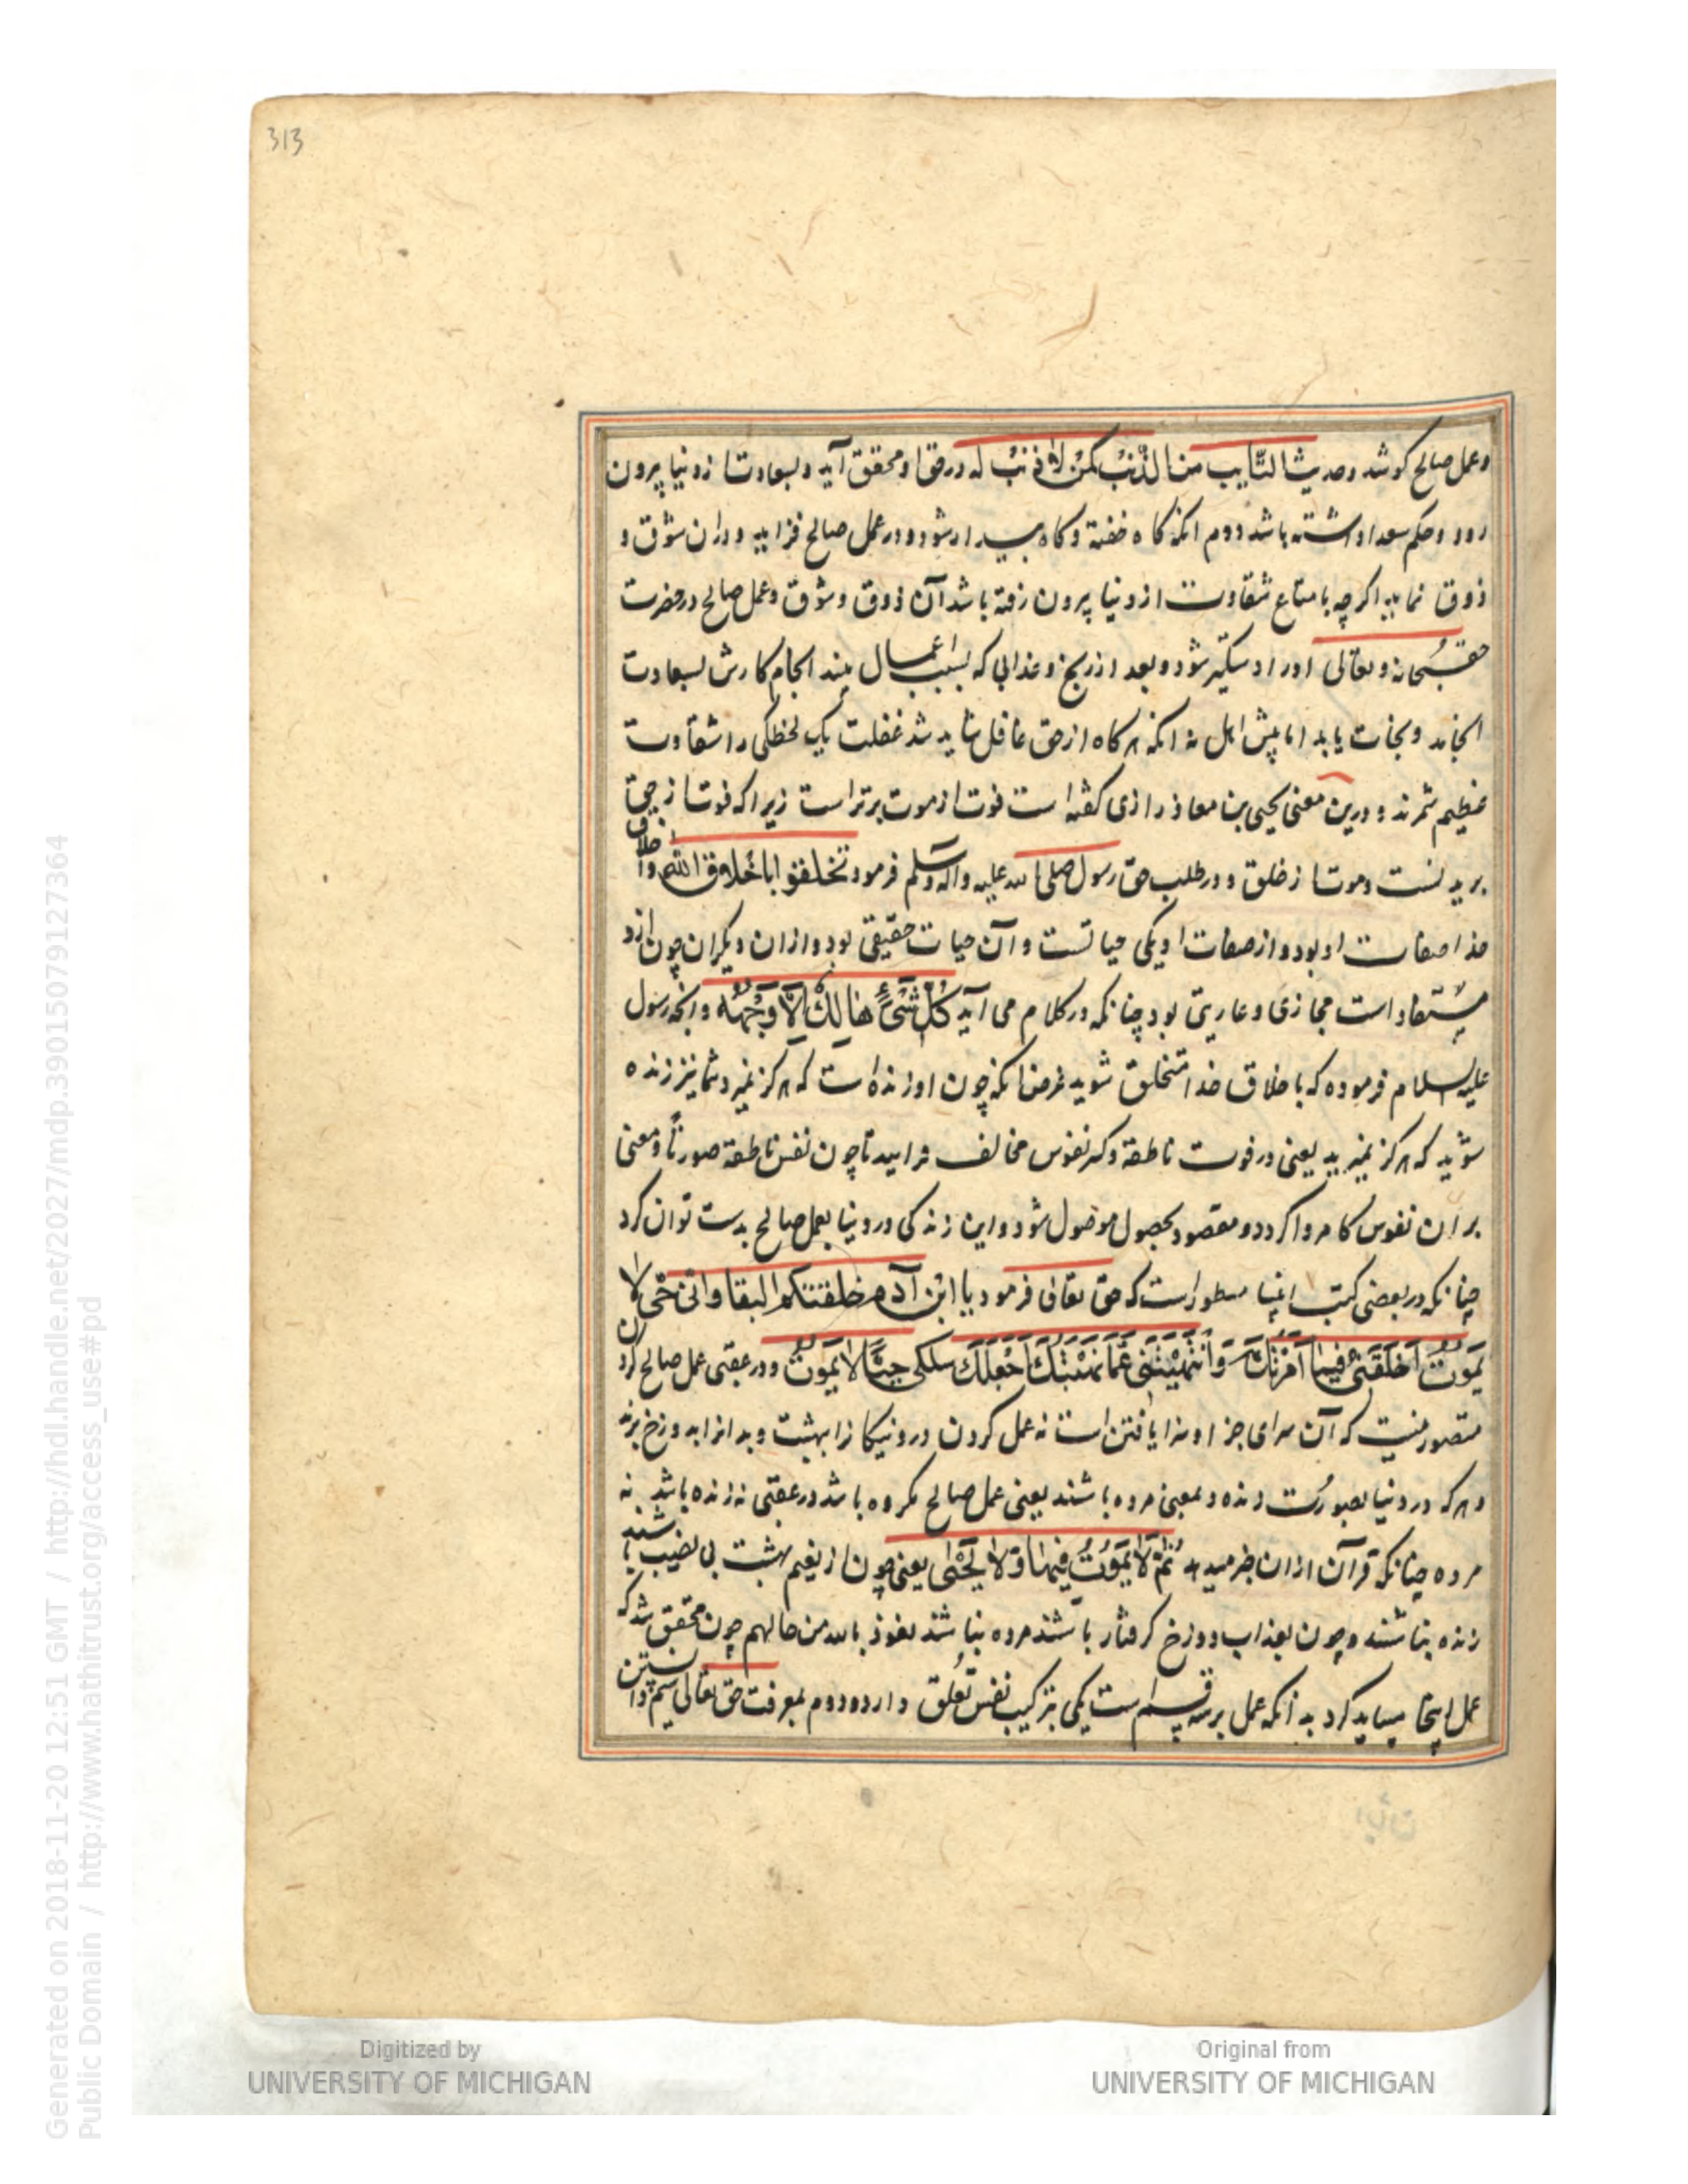 313
وعمل صالح کوشد وحدیث التایب من الذنب کمن لا ذنب له در حق او محقق آید وبسعادت از دنیا بیرون
رود وحکم سعدا داشته باشد دوم انکه کاه خفته وکاه بیدار شود ودر عمل صالح فزاید ودران شوق و
ذوق نماید اکرچه با متاع شقاوت از دنیا بیرون رفته باشد آن ذوق وشوق وعمل صالح در حضرت
حق سبحانه وتعالی اورا دستکیر شود وبعد از رنج وعذابی که بسبب اعمال بیند انجام کارش بسعادت
انجامد ونجات یابد اما پیش اهل نه انکه هرکاه از حق غافل شاید شد غفلت یک لحظکی را شقاوت
عظیم شمرند ودرین معنی یحیی بن معاذ رازی کفته است فوت از موت برتر است زیرا که فوت از حق
بریدنست وموت از خلق ودر طلب حق رسول صلی الله علیه وآله وسلم فرمود تخلقوا باخلاق الله واخلاق
خدا صفات او بود واز صفات او یکی حیاتست وآن حیات حقیقی بود واز ان دیکران چون ازو
مستفاد است مجازی وعاریتی بود چنانکه در کلام می آید کل شیء هالک الا وجهه وانچه رسول
علیه السلام فرموده که باخلاق خدا متخلق شوید غرض انکه چون او زنده است که هرکز نمیرد شما نیز زنده
شوید که هرکز نمیرید یعنی در فوت ناطقه وکسر نفوس مخالف در ایید تا چون نفس ناطقه صورتا ومعنی
بر ان نفوس کامروا کردد ومقصود بحصول موصول شود واین زندکی در دنیا بعمل صالح بدست توان کرد
چنانکه در بعضی کتب انبیا مسطور است که حق تعالی فرمود یا ابن آدم خلقتکم للبقا وانی حی لا
یموت اخلقنی فیما امرتک وانتهیتنی عما نهیتک اجعلک ملکی حیا لا یموت ودر عقبی عمل صالح کردن
متصور نیست که آن سرای جزا وسزا یافتن است نه عمل کردن در ونیکانرا بهشت وبدانرا بدوزخ برند
وهرکه در دنیا بصورت زنده وبمعنی مرده باشند یعنی عمل صالح نکرده باشد در عقبی نه زنده باشد نه
مرده چنانکه قرآن از ان خبر میدهد ثم لا یموت فیها ولا یحیی یعنی چون از نعیم بهشت بی نصیب باشند
زنده نباشند وچون بعذاب دوزخ کرفتار باشند مرده نباشند نعوذ بالله من حالهم چون محقق شد که
عمل اینجا میباید کرد بدانکه عمل بر سه قسم است یکی بترکیب نفس تعلق دارد ودوم بمعرفت حق تعالی سیم دانستن
Digitized by
UNIVERSITY OF MICHIGAN
Original from
UNIVERSITY OF MICHIGAN
Generated on 2018-11-20 12:51 GMT / http://hdl.handle.net/2027/mdp.39015079127364
Public Domain / http://www.hathitrust.org/access_use#pd